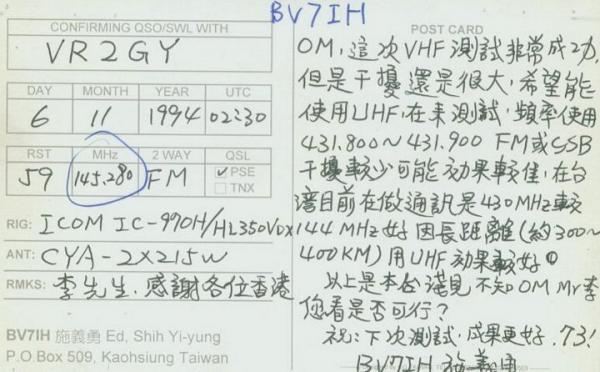 BV7IH
CONFIRMING QSO/SWL WITH
VR2GY
DAY MONTH YEAR UTC
6 11 1994 02:30
RST MHz 2 WAY QSL
59 145.280 FM ✓ PSE
TNX
RIG: ICOM IC-970H/HL350VDX
ANT: CYA-2X215W
RMKS: 李先生. 感謝各位香港
BV7IH 施義勇 Ed, Shih Yi-yung
P.O.Box 509, Kaohsiung Taiwan
POST CARD
OM, 這次VHF測試非常成功,
但是干擾還是很大, 希望能
使用UHF, 在來測試, 頻率使用
431.800~431.900 FM或SSB
干擾較少可能効果較佳, 在台
灣目前在做通訊是430MHz較
144MHz好 因長距離(約300~
400KM)用UHF効果較好。
以上是本台淺見 不知OM Mr李
您看是否可行?
祝:下次測試, 成果更好. 73!
BV7IH 施義勇